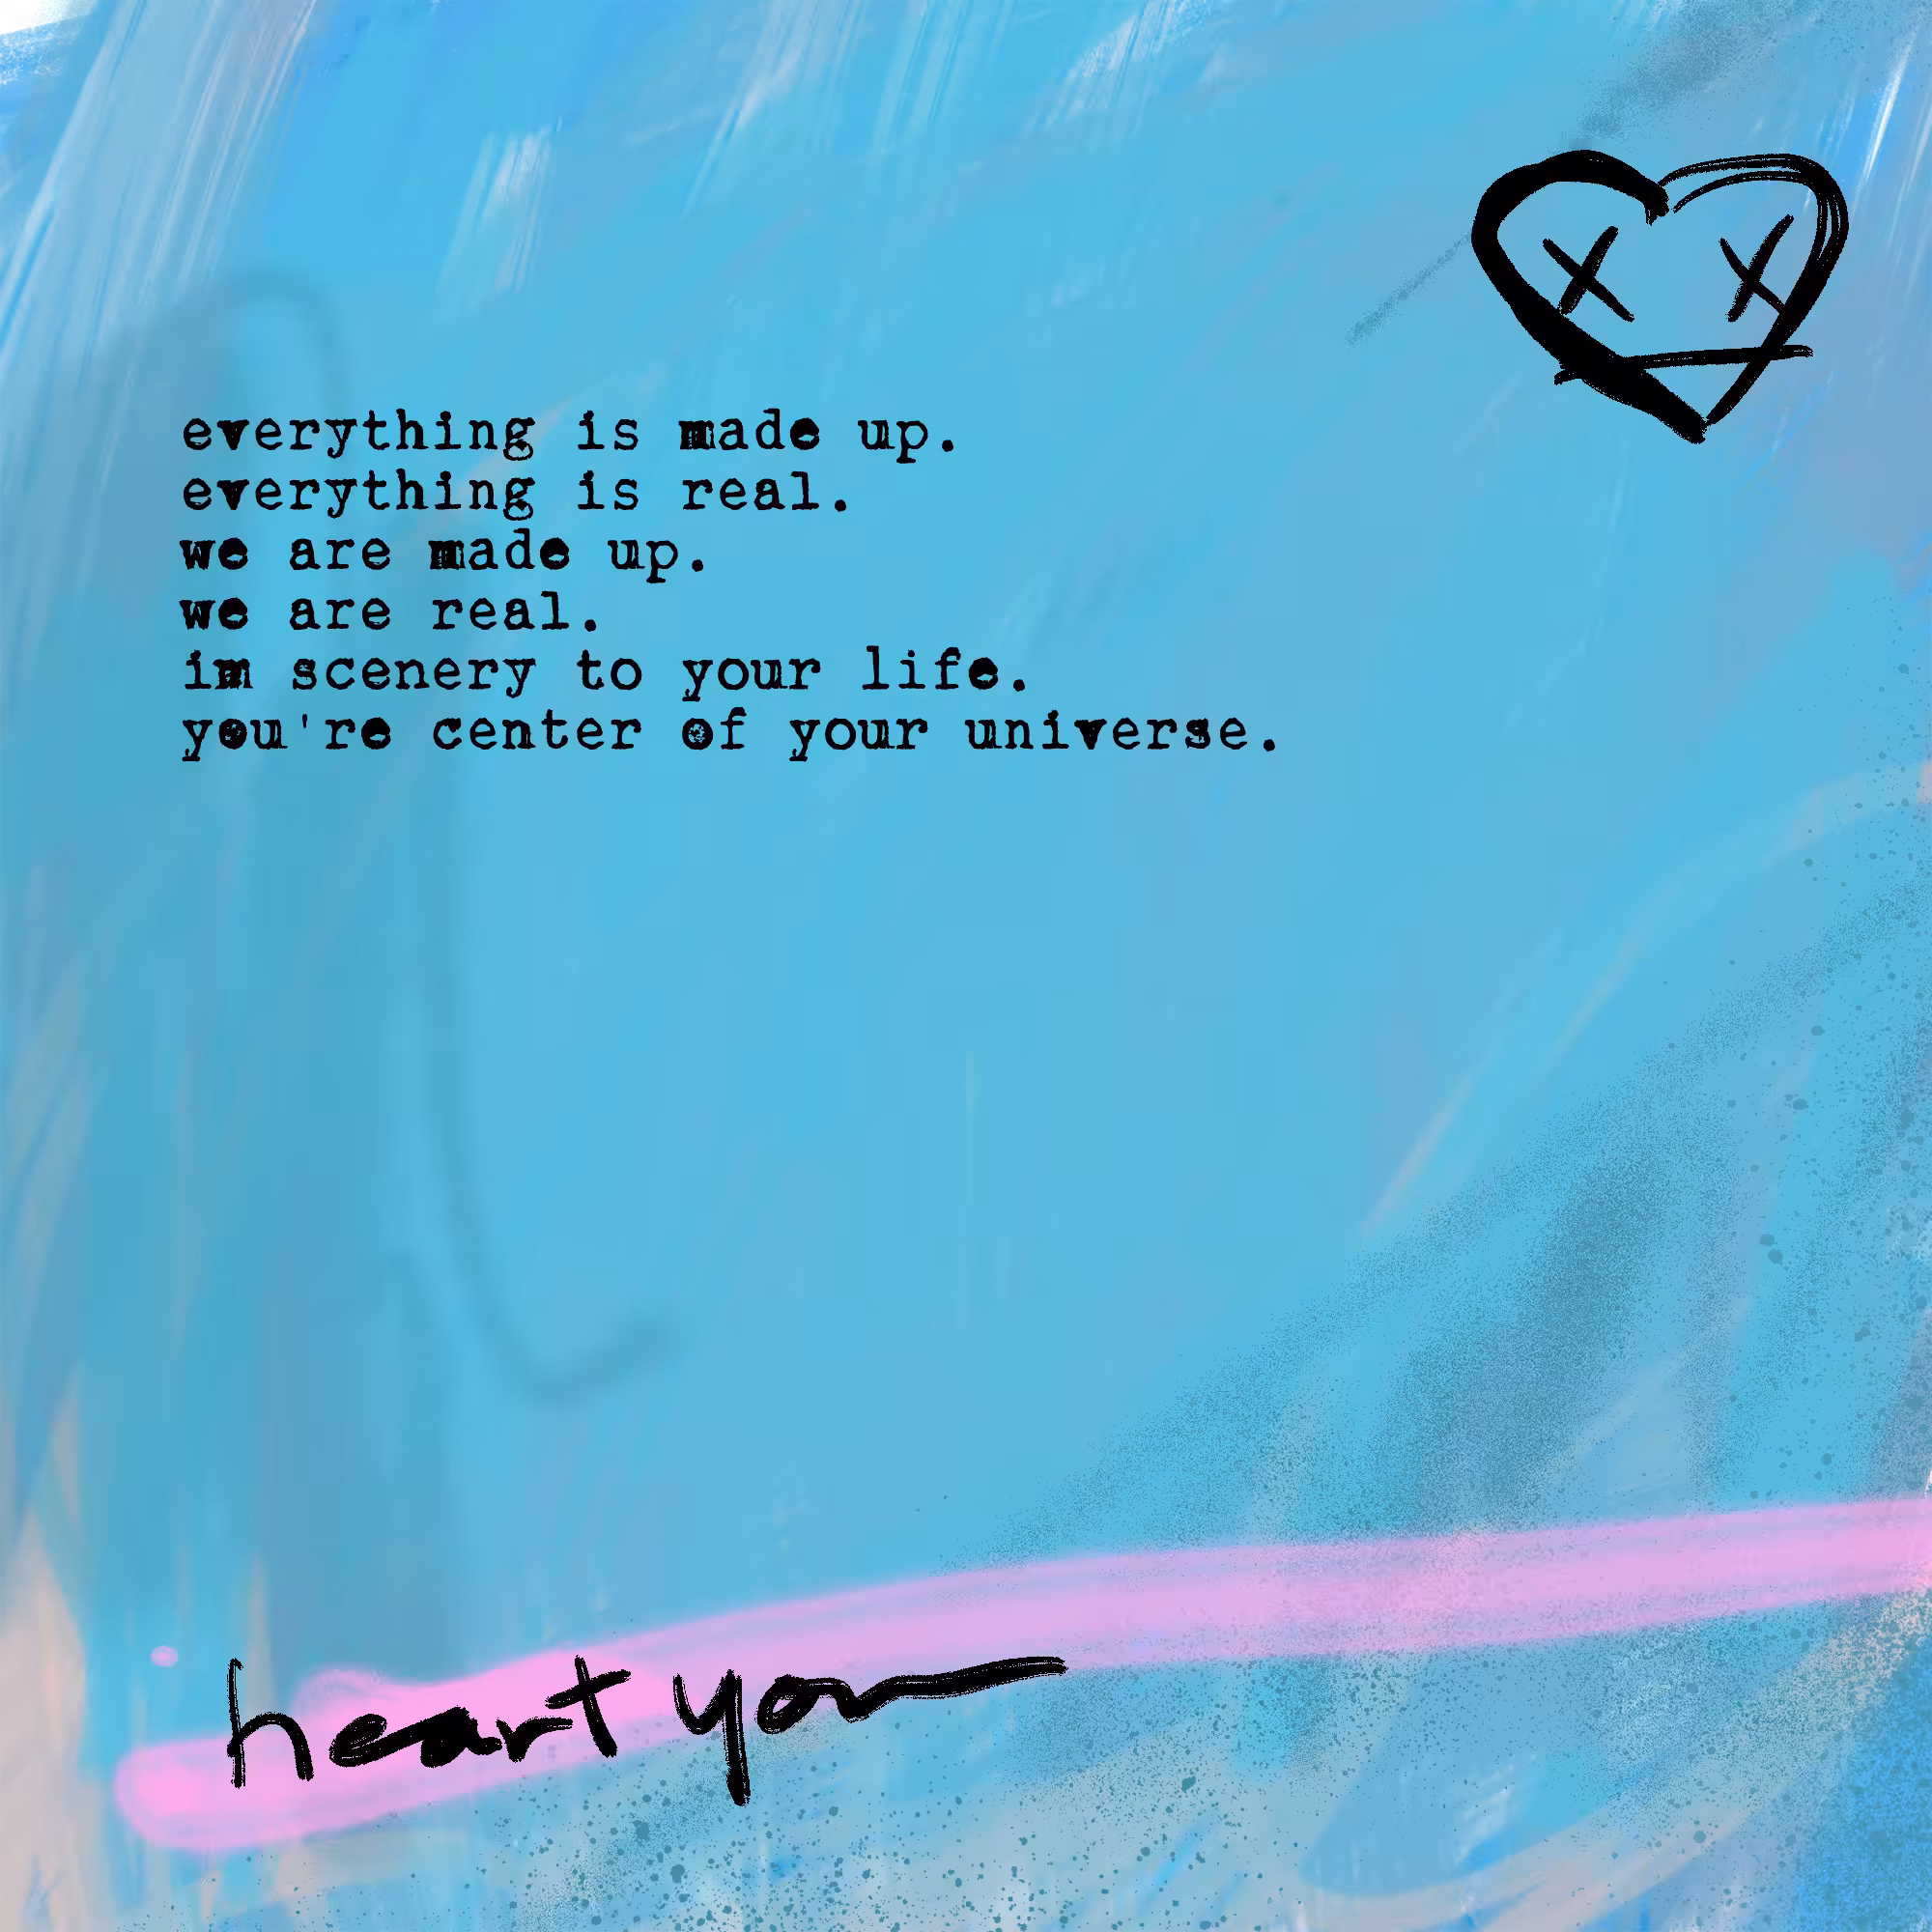 everything is made up.
everything is real.
we are made up.
we are real.
im scenery to your life.
you're center of your universe.
heart you